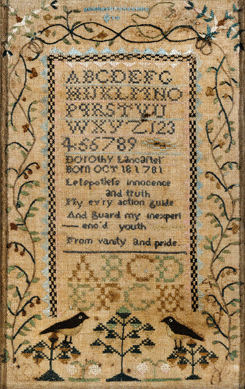 ABCDEFG
HIJKLMNO
PQRSTUV
WXYZ123
4566789
DOROTHY Lancaster
BORN OCT 18 1781
Let spotless innocence
and truth
My ev'ry action guide
And guard my inexperi
enc'd youth
From vanity and pride
ABCD